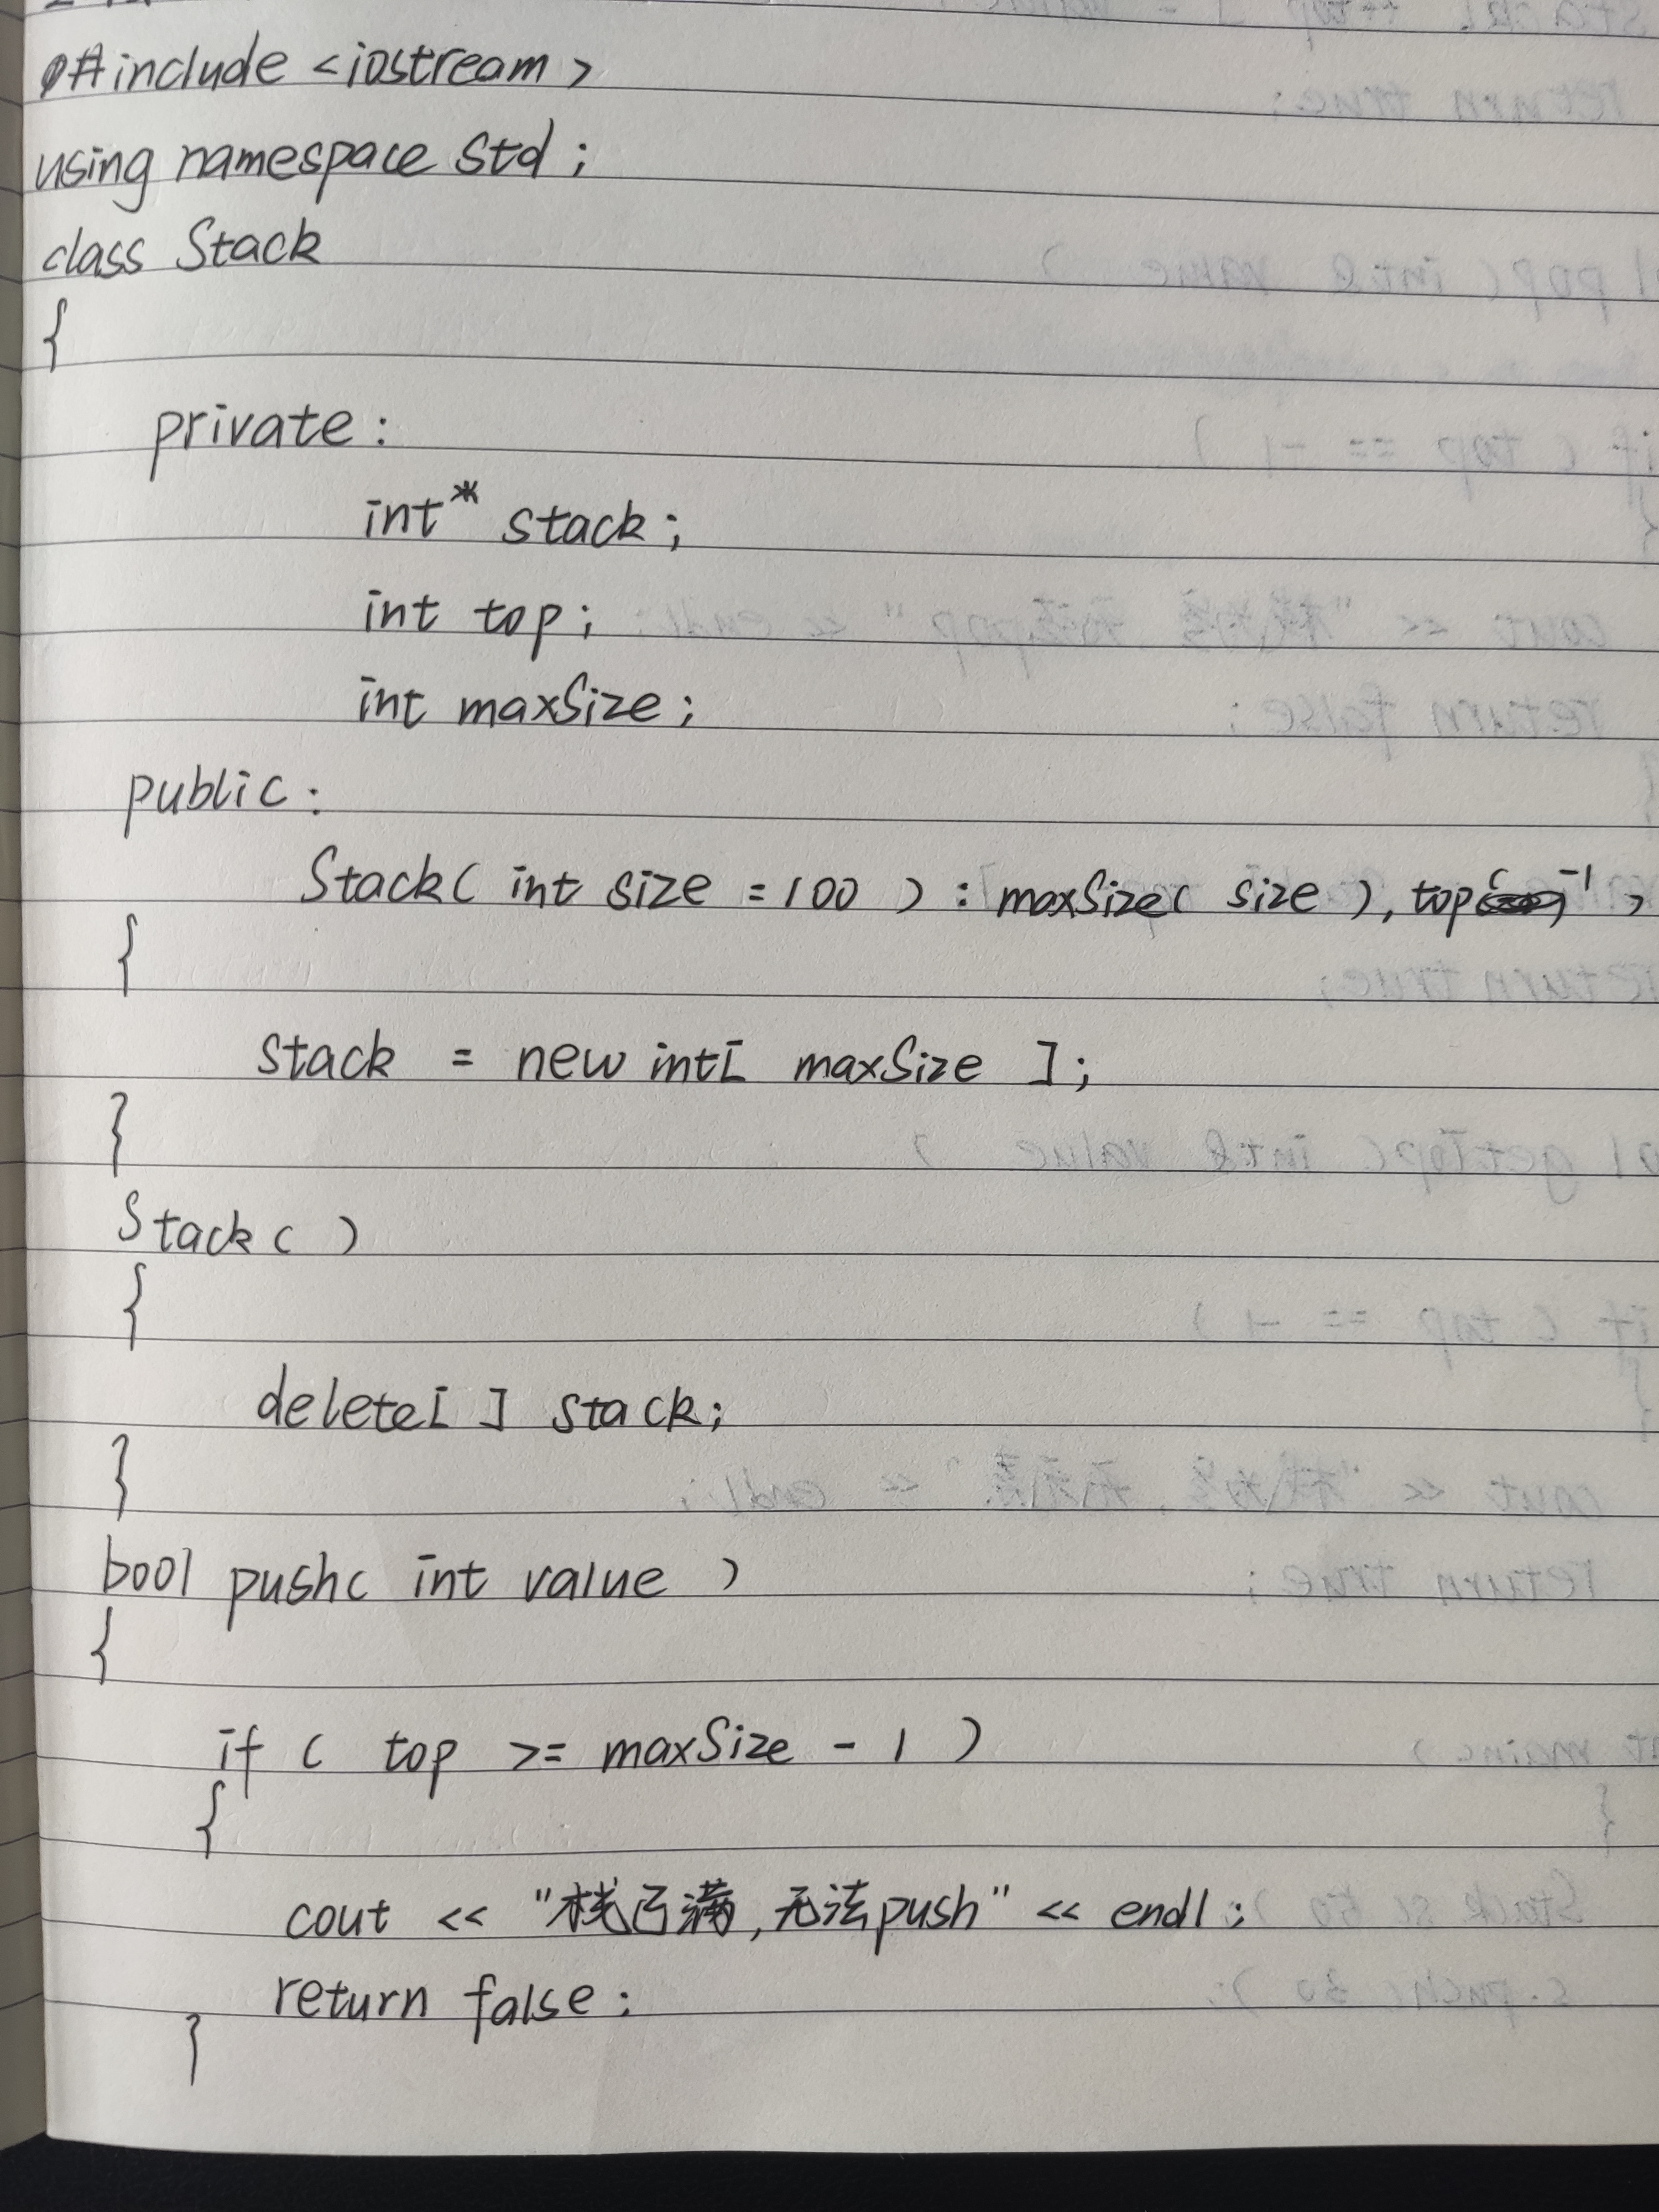 #include <iostream>
using namespace std;
class Stack
{
private:
int* stack;
int top;
int maxSize;
public:
Stack( int size = 100 ) : maxSize( size ), top(-1)
{
stack = new int[ maxSize ];
}
Stack( )
{
delete[ ] stack;
}
bool push( int value )
{
if ( top >= maxSize - 1 )
{
cout << "栈已满,无法push" << endl;
return false;
}